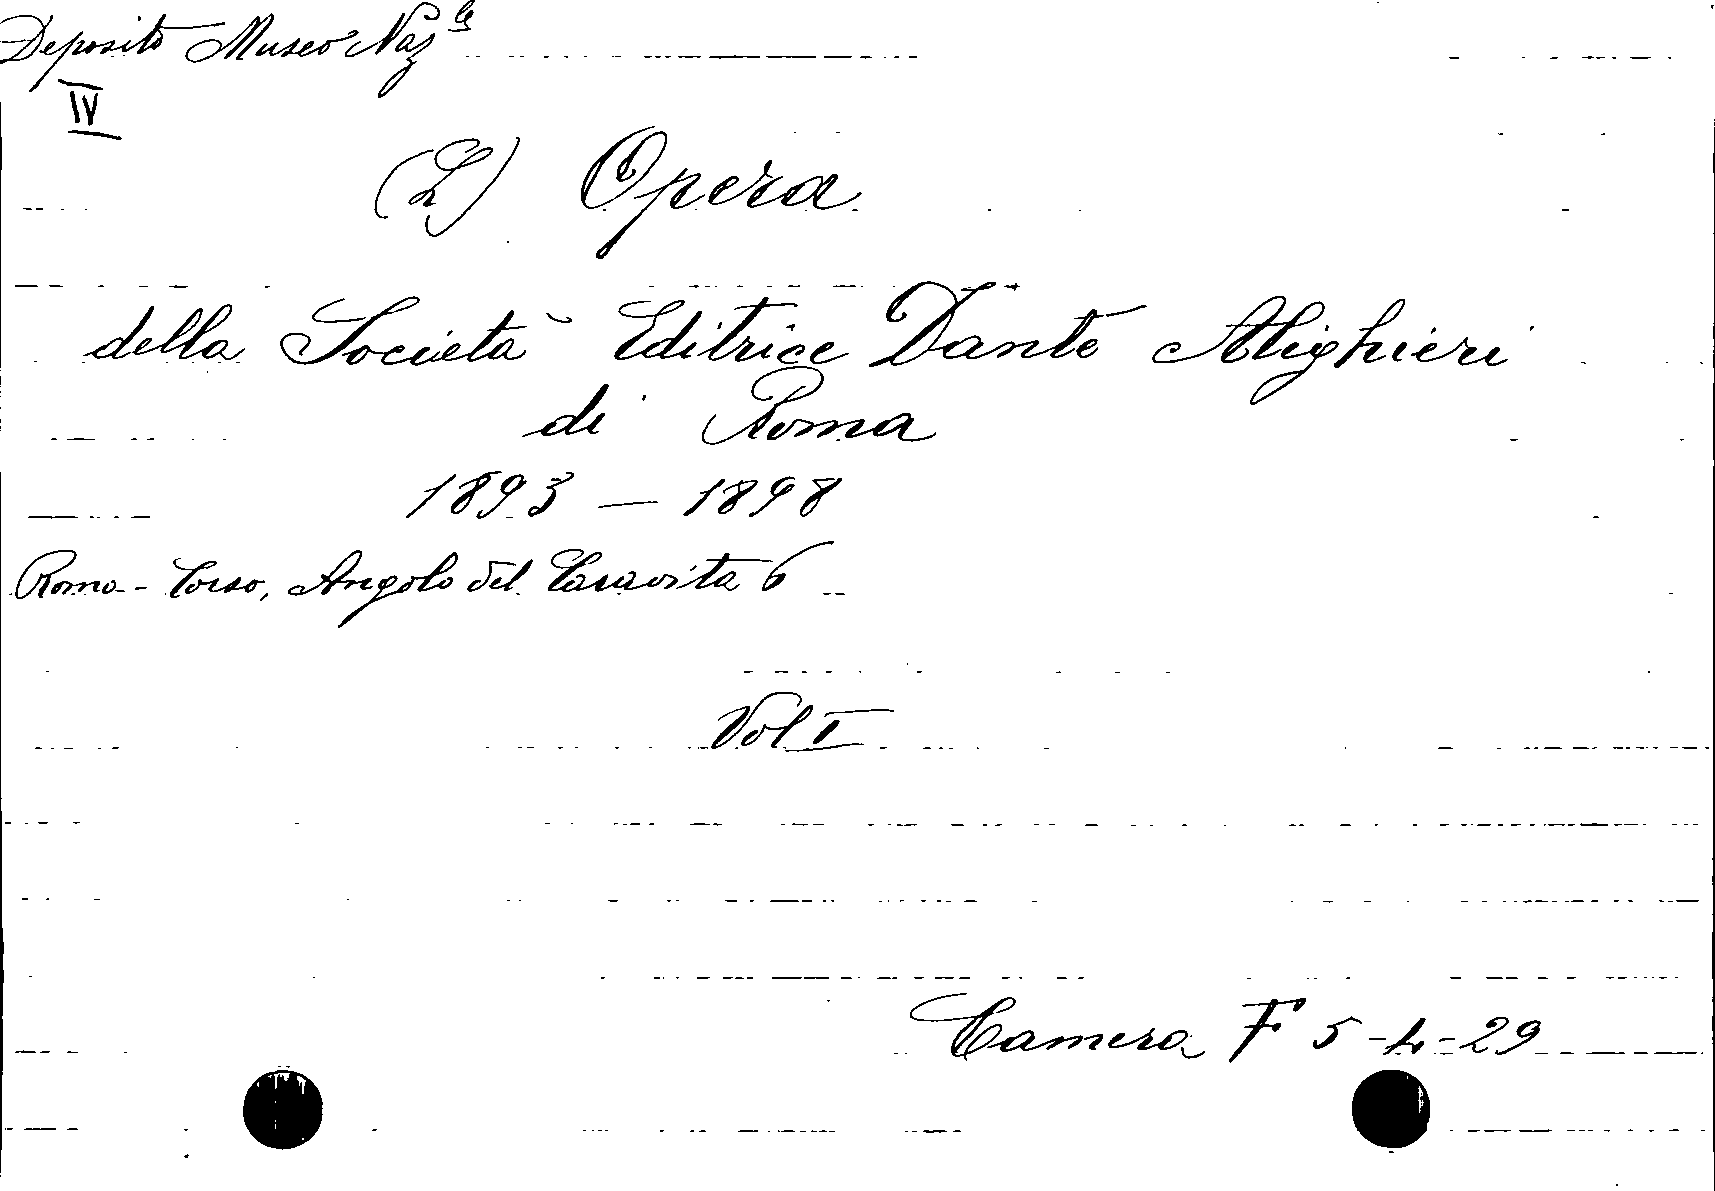 Deposito Museo Naz.le
IV
(L') Opera
della Società Editrice Dante Alighieri
di Roma
1893 — 1898
Roma - Corso, Angolo del Caravita 6
Vol I
Camera F 5-4-29